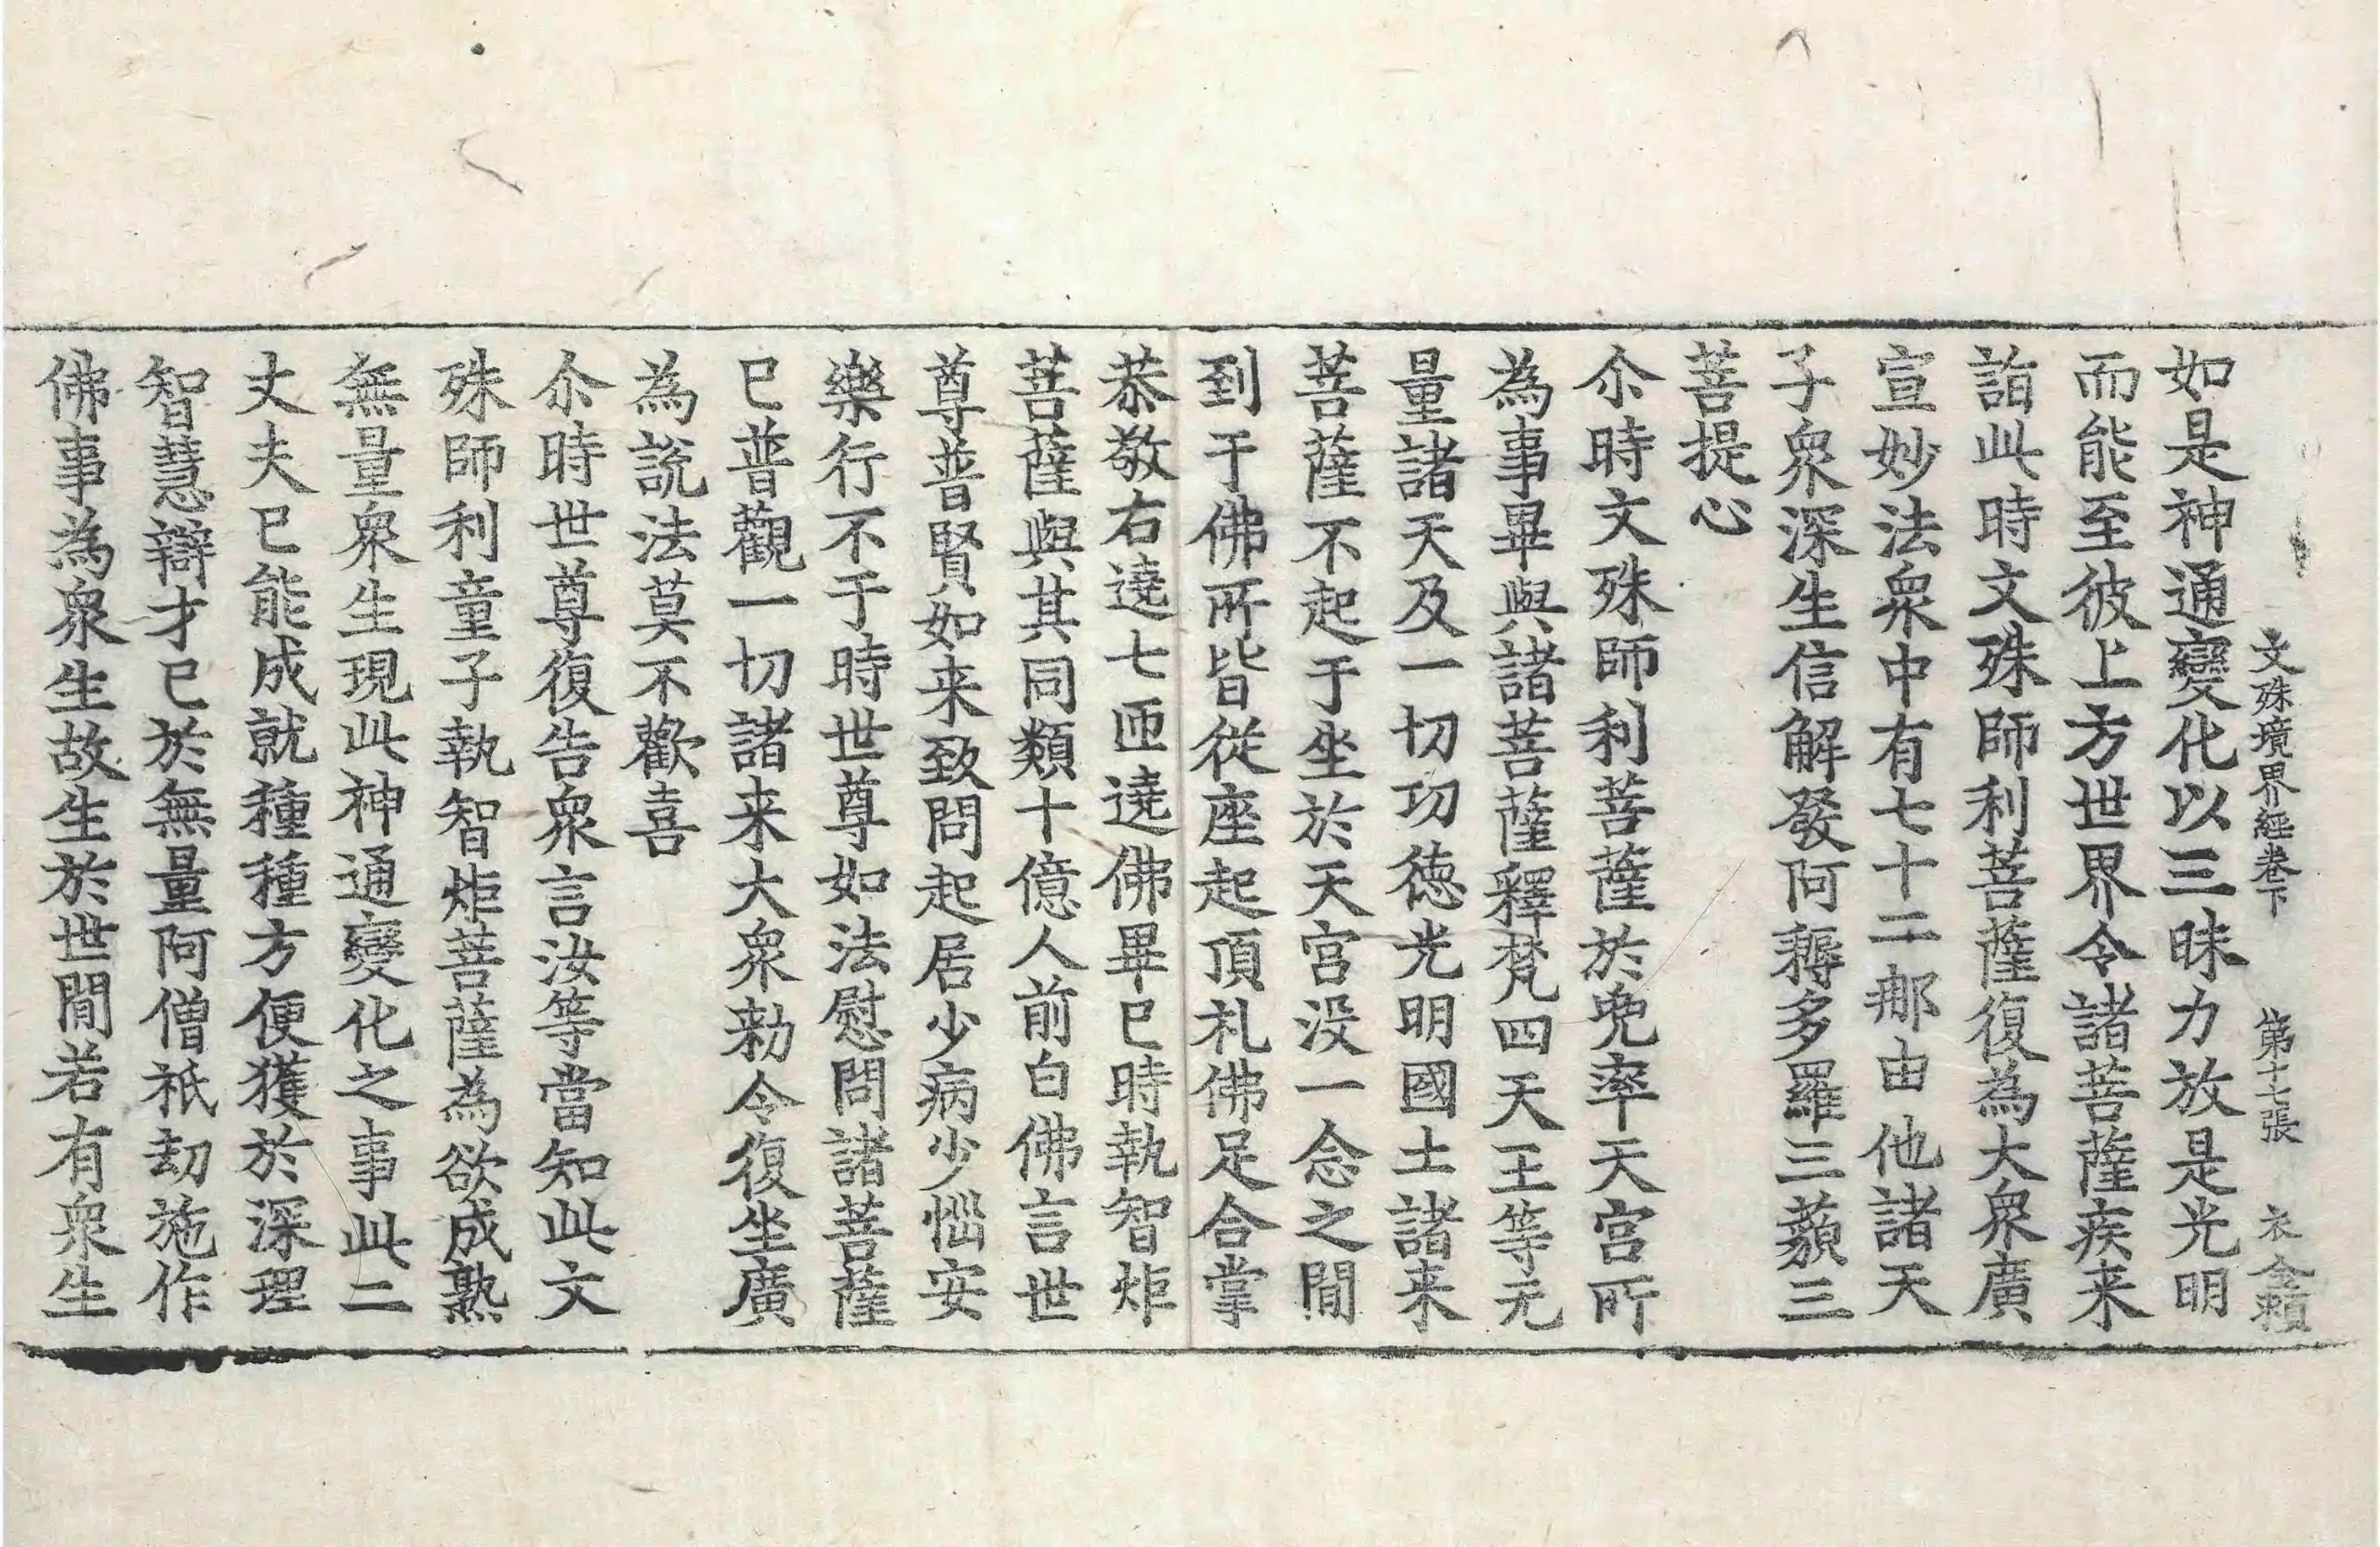 文殊境界經卷下 第十七張 衣 金賴
如是神通變化以三昧力放是光明
而能至彼上方世界令諸菩薩疾来
詣此時文殊師利菩薩復為大衆廣
宣妙法衆中有七十二那由他諸天
子衆深生信解發阿耨多羅三藐三
菩提心
尒時文殊師利菩薩於兜率天宮所
為事畢與諸菩薩釋梵四天王等无
量諸天及一切功徳光明國土諸来
菩薩不起于坐於天宮没一念之間
到于佛所皆從座起頂札佛足合掌
恭敬右遶七匝遶佛畢已時執智炬
菩薩與其同類十億人前白佛言世
尊普賢如来致問起居少病少惱安
樂行不于時世尊如法慰問諸菩薩
已普觀一切諸来大衆勑令復坐廣
為說法莫不歡喜
尒時世尊復告衆言汝等當知此文
殊師利童子執智炬菩薩為欲成熟
無量衆生現此神通變化之事此二
丈夫已能成就種種方便獲於深理
智慧辯才已於無量阿僧祇劫施作
佛事為衆生故生於世間若有衆生